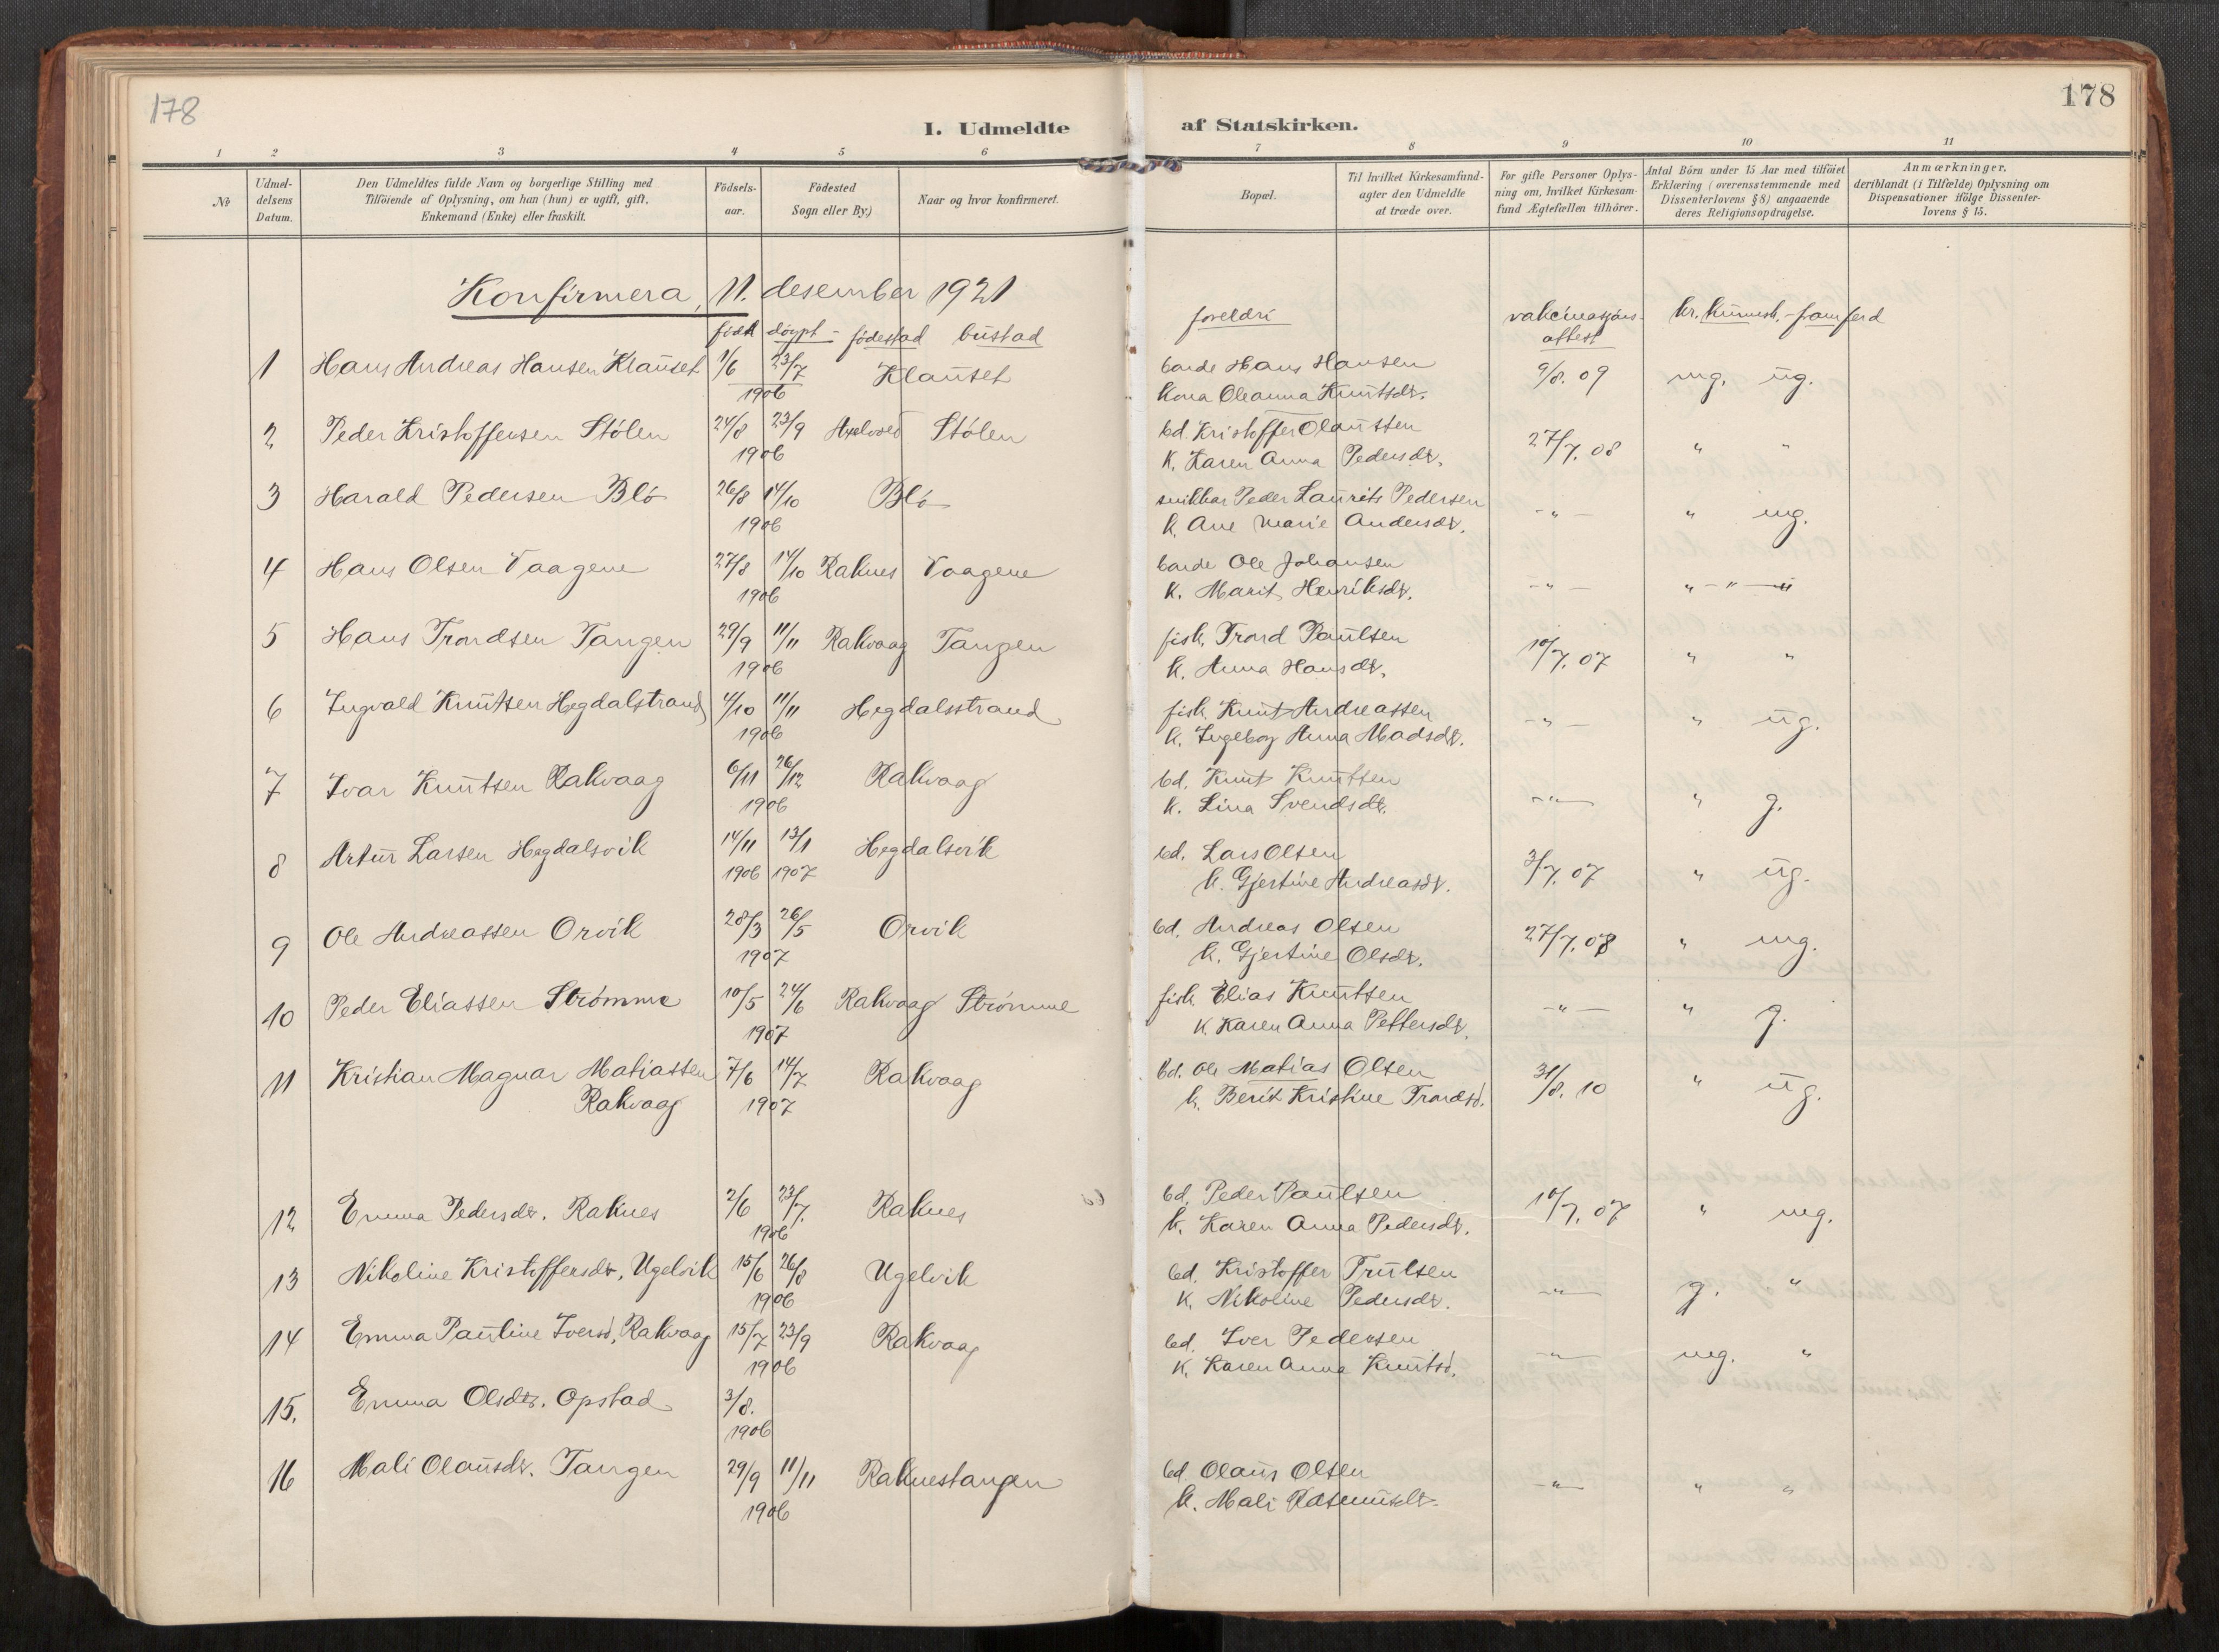 178
178
I. Udmeldte af Statskirken.
1 2 3 4 5 6 7 8 9 10 11
No
Udmel-
delsens
Datum.
Den Udmeldtes fulde Navn og borgerlige Stilling med
Tilföiende af Oplysning, om han (hun) er ugift, gift,
Enkemand (Enke) eller fraskilt.
Födsels-
aar.
Födested
Sogn eller By.)
Naar og hvor konfirmeret.
Bopæl.
Til hvilket Kirkesamfund-
agter den Udmeldte
at træde over.
For gifte Personer Oplys-
ning om, hvilket Kirkesam-
fund Ægtefællen tilhörer.
Antal Börn under 15 Aar med tilföiet
Erklæring (overensstemmende med
Dissenterlovens § 8) angaaende
deres Religionsopdragelse.
Anmærkninger,
deriblandt (i Tilfælde) Oplysning om
Dispensationer ifölge Dissenter-
lovens § 15.
Konfirmera, 11. desember 1921
födt döypt - födestad bustad foreldri vakcinasjons- kr. kunnsk. - framferd
attest
1 Hans Andreas Hansen Klauset 1/6 23/7 Klauset barde Hans Hansen 9/8. 09 mg. ug.
1906 kona Oleanna Knutsdr.
2 Peder Kristoffersen Stölen 24/8 23/9 Stölen bd. Kristoffer Olaussen 27/7. 08 " "
1906 K. Karen Anna Pedersdr.
3 Harald Pedersen Blö 26/8 14/10 Blö snikkar Peder Laurits Pedersen -"- " mg.
1906 k. Ane Marie Andersdr.
4 Hans Olsen Vaagene 27/8 14/10 Raknes Vaagene barde Ole Johansen -"- " - " - "
1906 K. Marit Henriksdr.
5 Hans Trondsen Tangen 29/9 11/11 Rakvaag Tangen fisk. Trond Paulsen 10/7. 07 " "
1906 k. Anna Hansdr.
6 Ingvald Knutsen Hegdalstrand 4/10 11/11 Hegdalsstrand fisk. Knut Andreassen -"- " ug.
1906 k. Ingeborg Anna Madsdr.
7 Ivar Knutsen Rakvaag 6/11 26/12 Rakvaag bd. Knut Knutsen -"- " g.
1906 k. Lina Svendsdr.
8 Artur Larsen Hegdalsvik 14/11 13/1 Hegdalsvik bd. Lars Olsen 3/7. 07 " ug.
1906 1907 k. Gjertine Andreasdr.
9 Ole Andreassen Orvik 28/3 26/5 Orvik bd. Andreas Olsen 27/7. 08 " mg.
1907 k. Gjertine Olsdr.
10 Peder Eliassen Strömme 10/5 24/6 Rakvaag Strömme fisk. Elias Knutsen -"- " g.
1907 K. Karen Anna Pettersdr.
11 Kristian Magnar Matiassen 7/6 14/7 Rakvaag bd. Ole Matias Olsen 31/8. 10 " ug.
Rakvaag 1907 k. Berit Kristine Trondsd.
12 Emma Pedersdr. Raknes 2/6 23/7. Raknes bd. Peder Paulsen 10/7. 07 " mg.
1906 k. Karen Anna Pedersdr.
13 Nikoline Kristoffersdr. Ugelvik 15/6 26/8 Ugelvik bd. Kristoffer Trulsen -"- g. "
1906 K. Nikoline Pedersdr.
14 Emma Pauline Iversd. Rakvaag 15/7 23/9 Rakvaag bd. Iver Pedersen -"- mg. "
1906 K. Karen Anna Knutsd.
15. Emma Olsdtr. Opstad 3/8.
1906
16 Mali Olausdr. Tangen 29/9 11/11 Raknestangen bd. Olaus Olsen -"- " "
1906 k. Mali Rasmusdr.